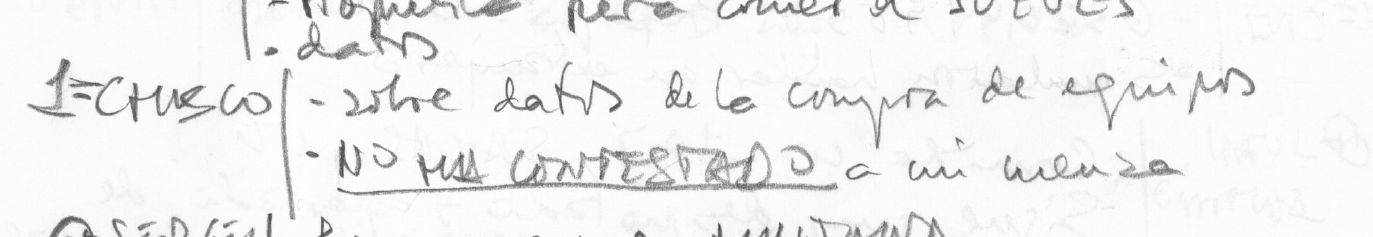 para comer el JUEVES
- datos
1=CHUSCO - sobre datos de la compra de equipos
- NO HA CONTESTADO a mi mensa